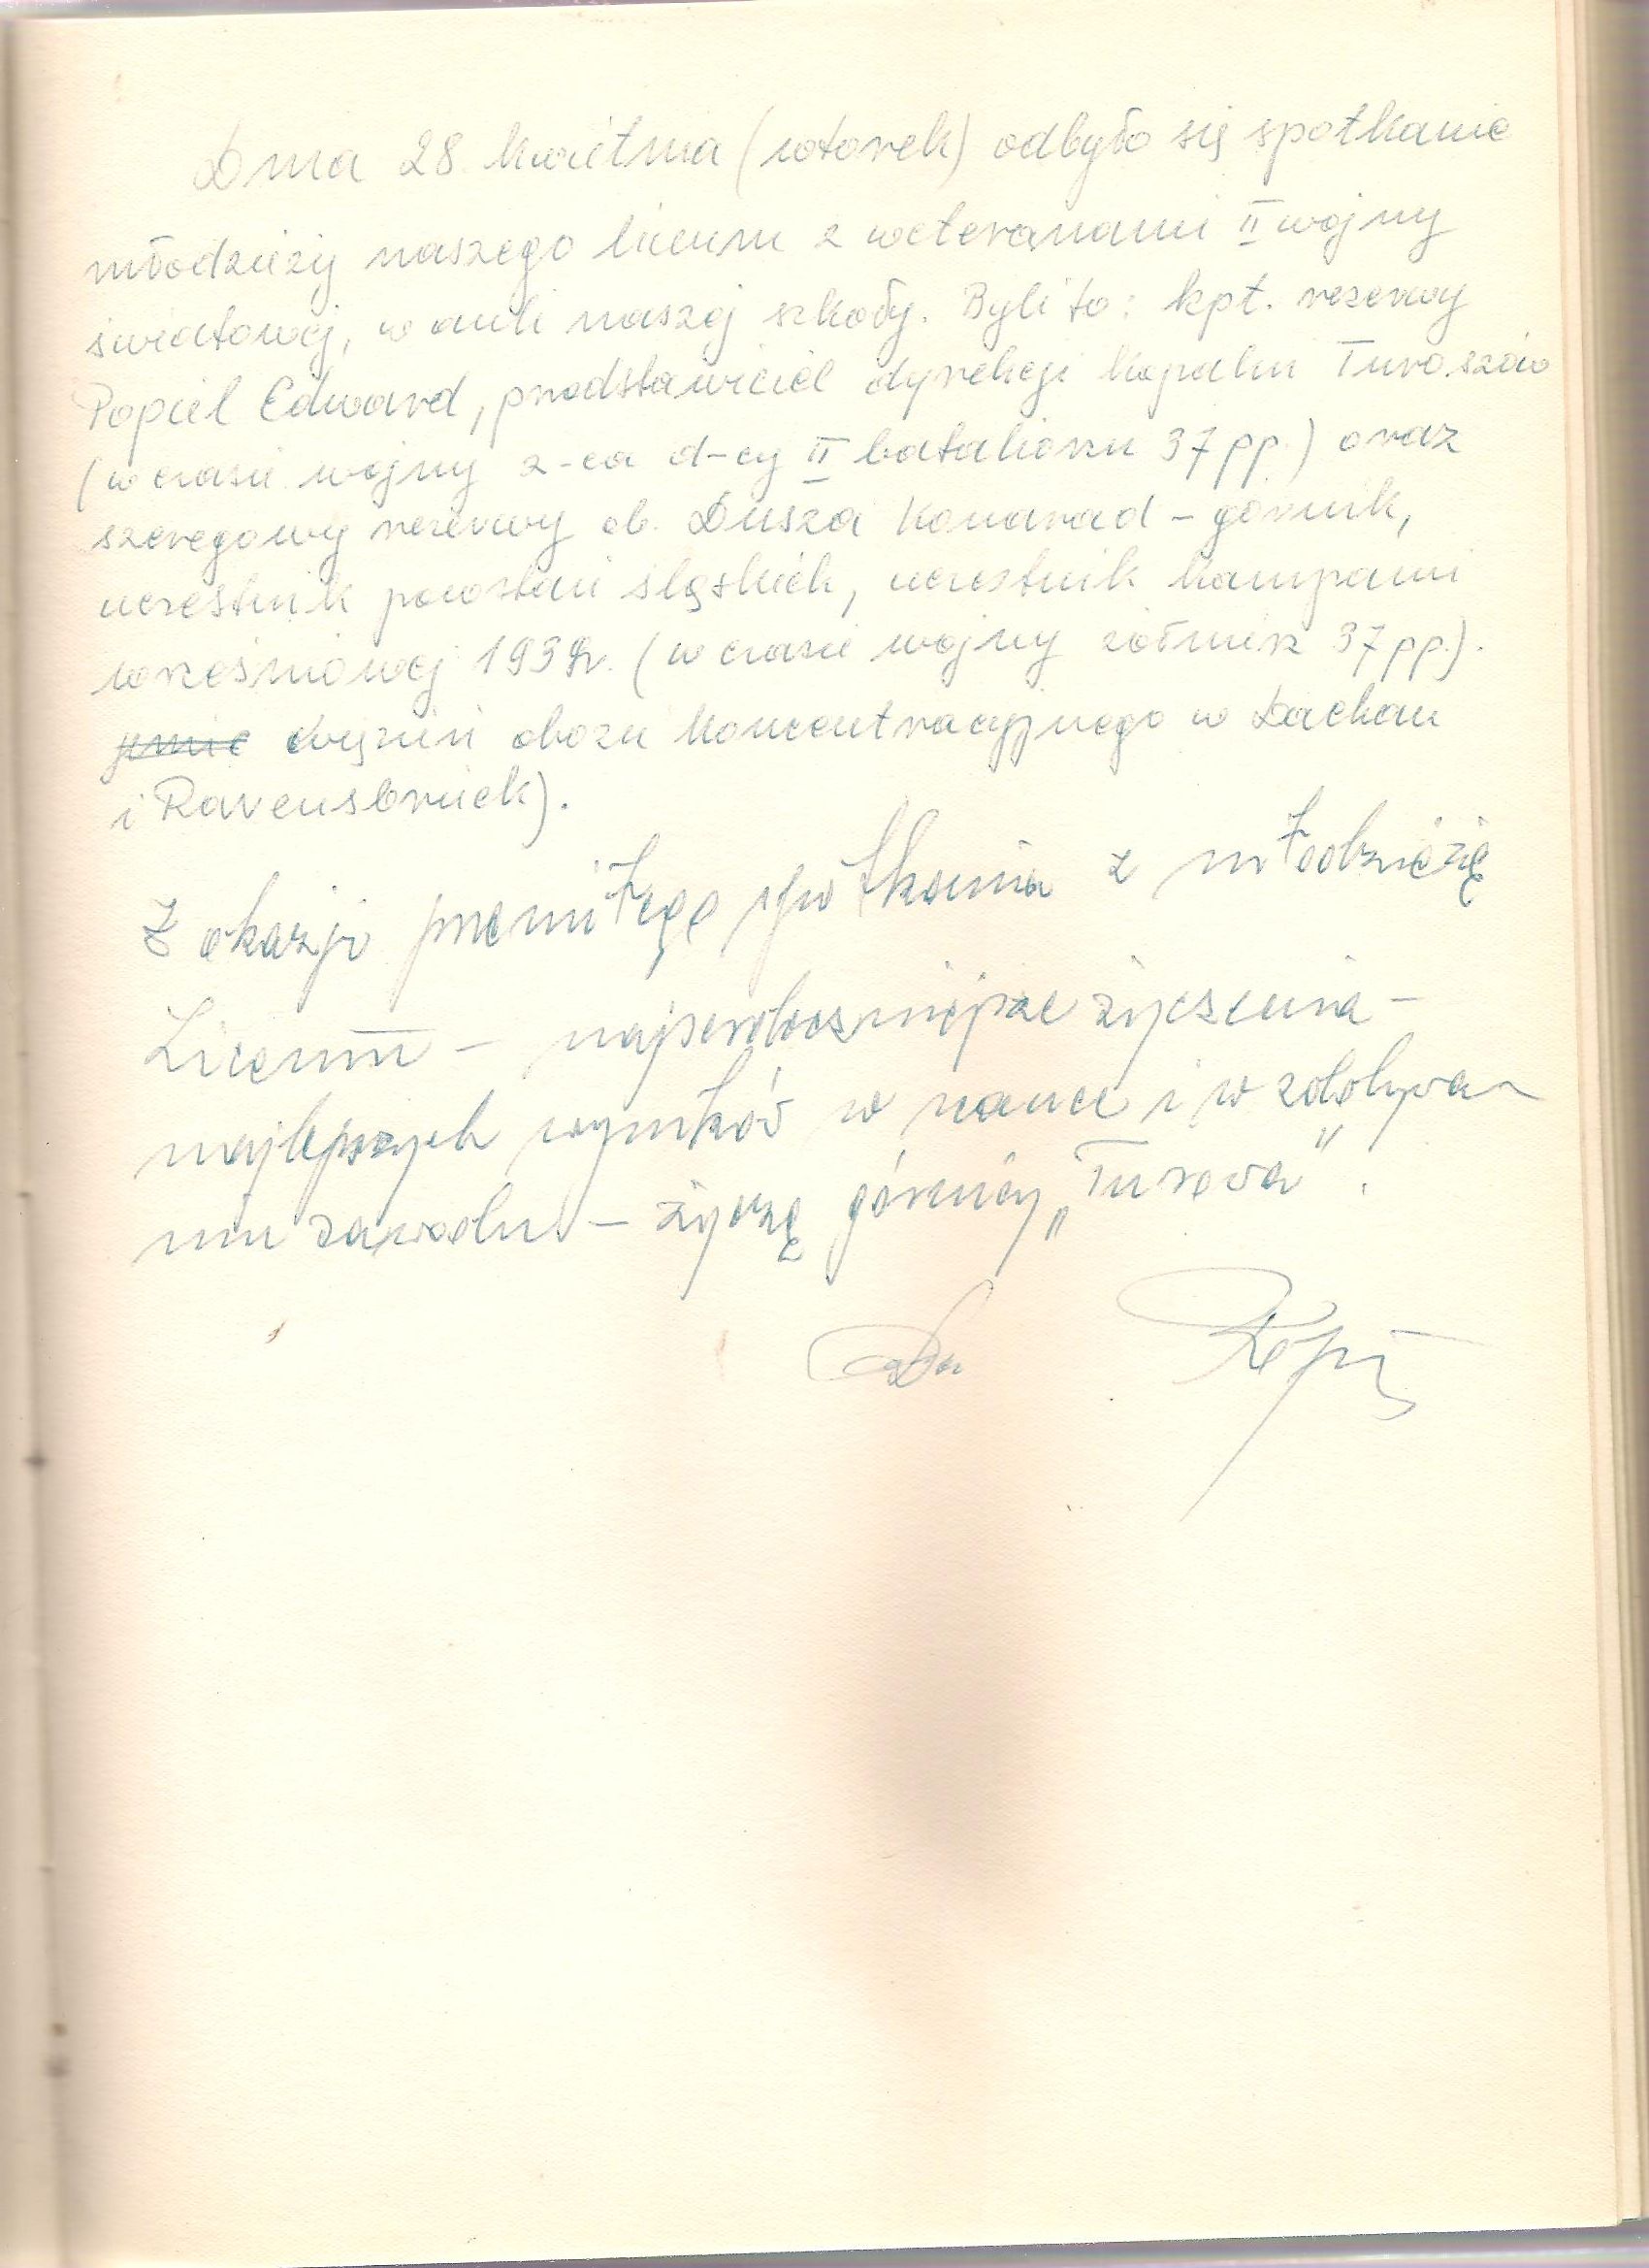 Dnia 28 kwietnia (wtorek) odbyło się spotkanie
młodzieży naszego liceum z weteranami II wojny
światowej, w auli naszej szkoły. Byli to: kpt. rezerwy
Popiel Edward, przedstawiciel dyrekcji kopalni Turoszów
(w czasie wojny z-ca d-cy II batalionu 37 pp.) oraz
szeregowy rezerwy ob. Dusza Konarad – górnik,
uczestnik powstań śląskich, uczestnik kampanii
wrześniowej 1939r. (w czasie wojny żołnierz 37 pp.).
więzień obozu koncentracyjnego w Dachau
i Ravensbruck).
Z okazji przemiłego spotkania z młodzieżą
Liceum – najserdeczniejsze życzenia –
najlepszych wyników w nauce i w zdobywa-
niu zawodu – życzą górnicy „Turowa".